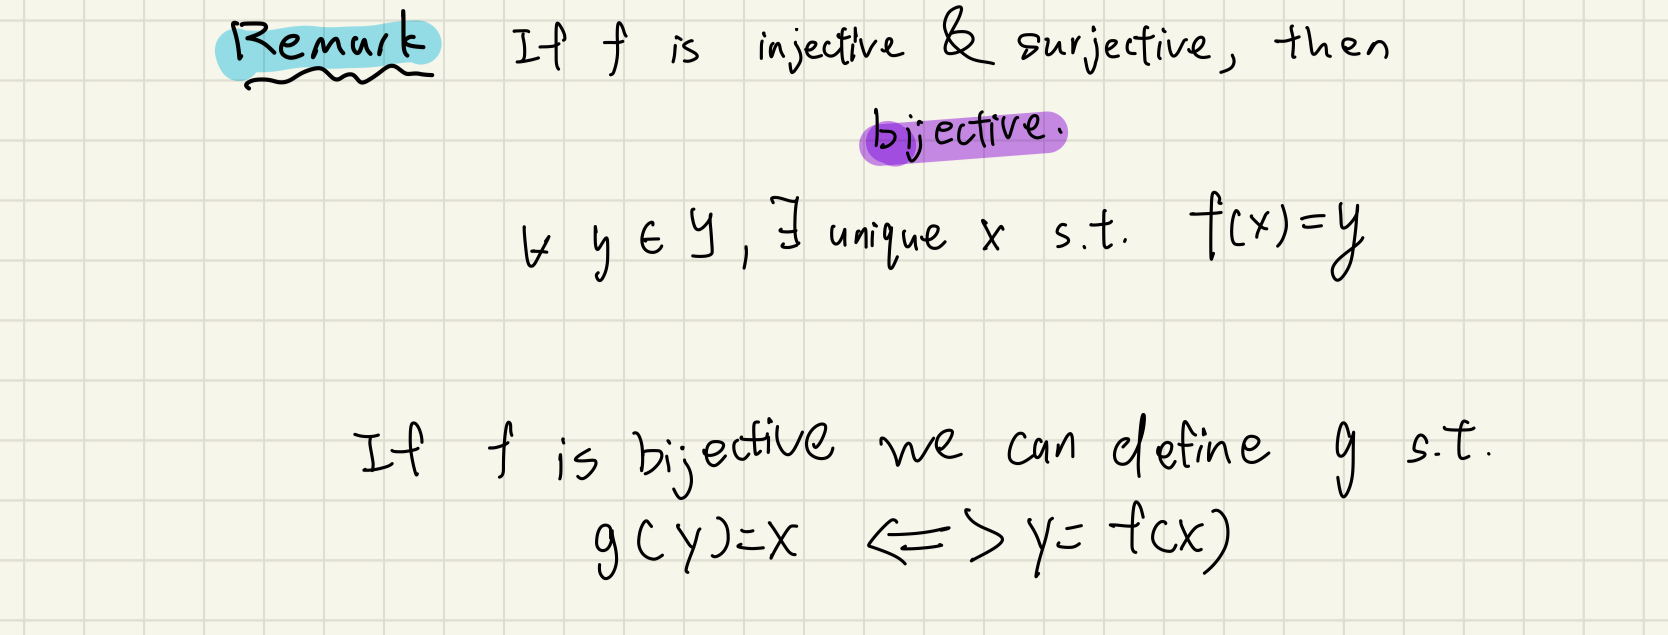 Remark If f is injective & surjective, then
bijective.
∀ y ∈ Y, ∃ unique x s.t. f(x)=y
If f is bijective we can define g s.t.
g(y)=x <=> y= f(x)